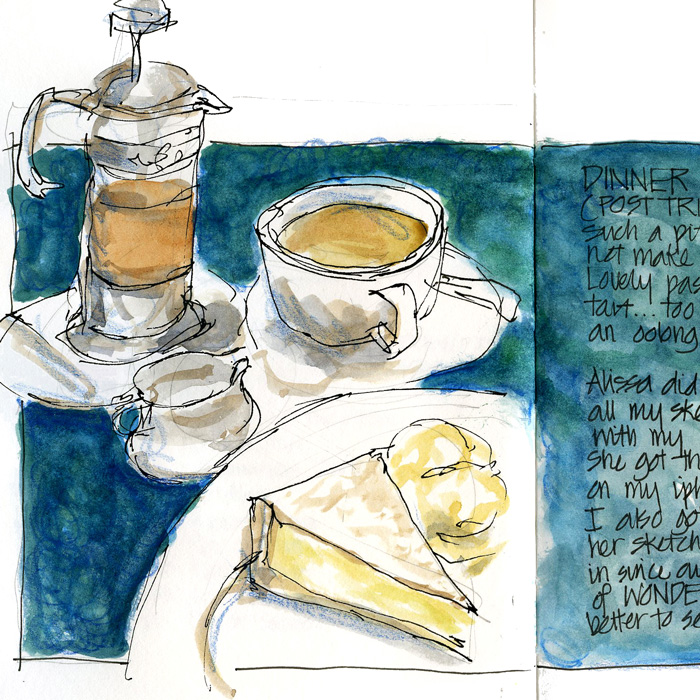 DINNER
(POST TRI
such a pit
not make
Lovely pas
tart... too
an oolong
Alissa did
all my ske
with my
She got th
on my iph
I also go
her sketch
in since au
of WONDE
better to se